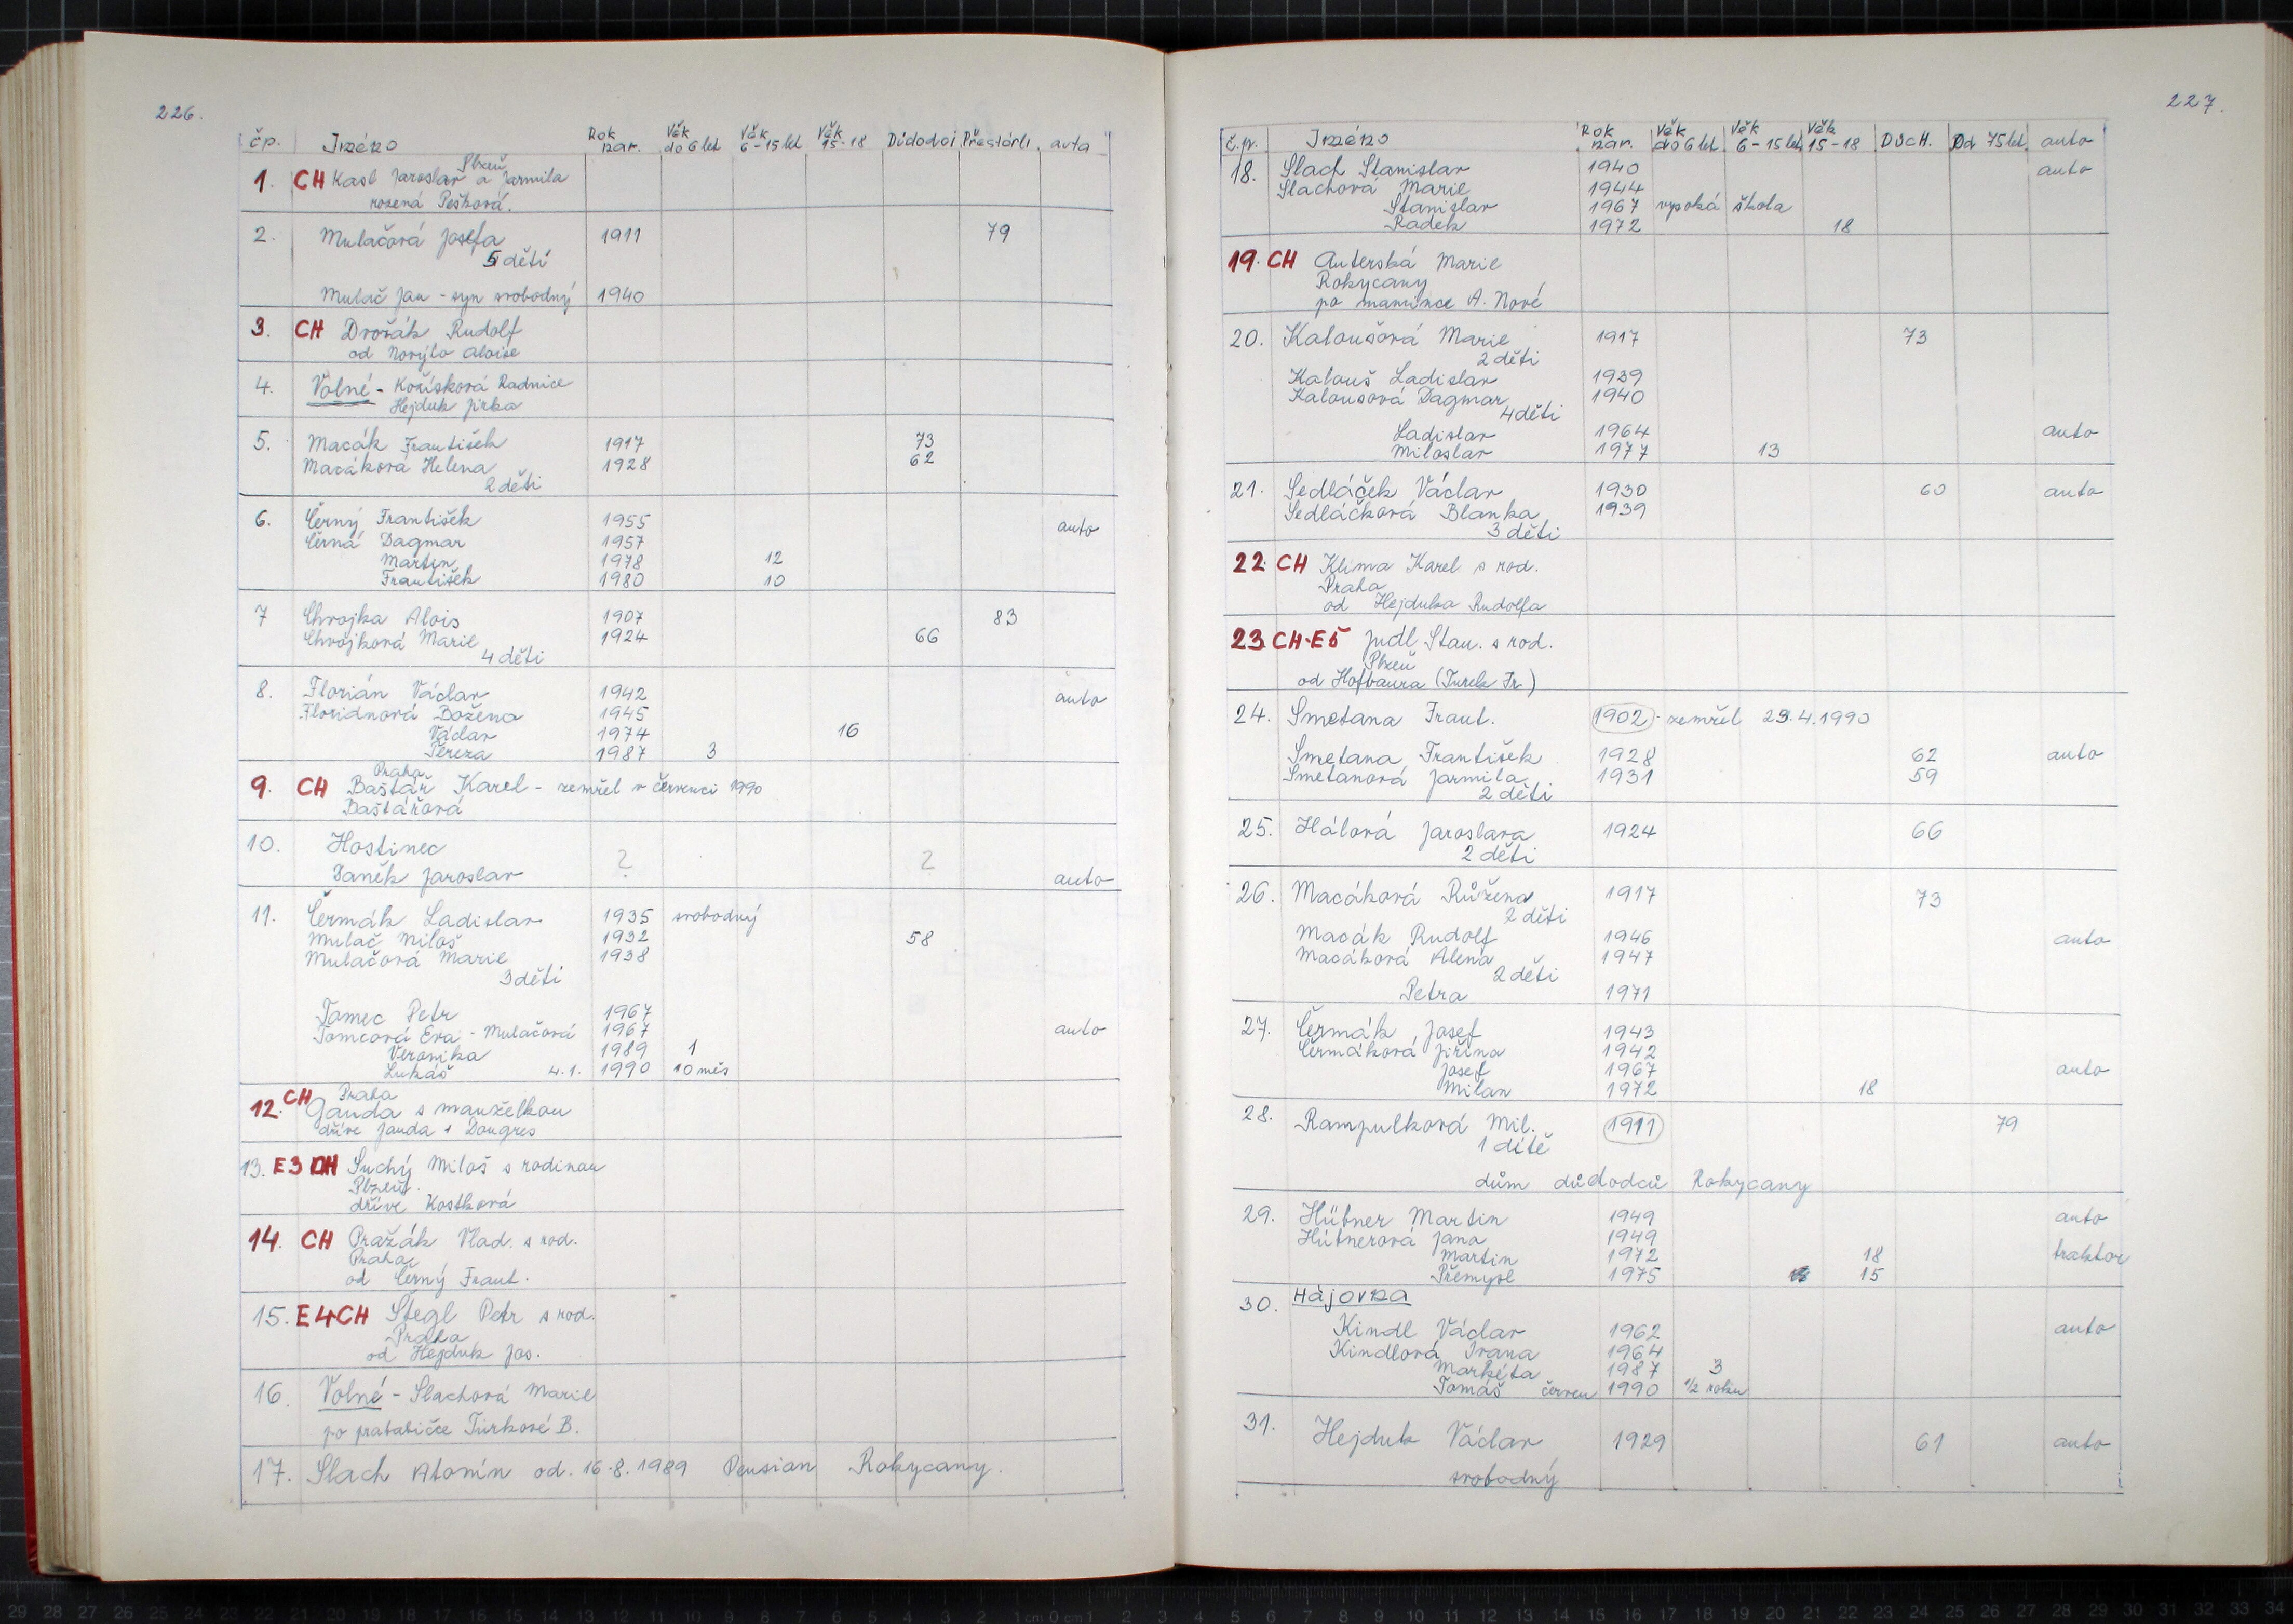 226.
čp. Jméno Rok nar. Věk do 6 let Věk 6-15 let Věk 15-18 Důdodci Přestárlí auta
Plzeň
1. CH Kasl Jaroslav a Jarmila
rozená Pešková.
2. Mulačová Josefa 1911 79
5 dětí
Mulač Jan - syn svobodný 1940
3. CH Dvořák Rudolf
od Nového Aloise
4. Volné - Kořísková Radnice
Hejduk Jirka
5. Macák František 1917 73
Macáková Helena 1928 62
2 děti
6. Černý František 1955 auto
Černá Dagmar 1957
Martin 1978 12
František 1980 10
7 Chvojka Alois 1907 83
Chvojková Marie 1924 66
4 děti
8. Florián Václav 1942 auto
Floriánová Božena 1945
Václav 1974 16
Tereza 1987 3
Praha
9. CH Baštář Karel - zemřel v červenci 1990
Baštářová
10. Hostinec
Vaněk Jaroslav ? 2 auto
11. Čermák Ladislav 1935 svobodný
Mulač Miloš 1932 58
Mulačová Marie 1938
3 děti
Tomec Petr 1967
Tomcová Eva - Mulačová 1967 auto
Veronika 1989 1
Lukáš 4.1. 1990 10 měs
CH Praha
12. Ganda s manželkou
dříve Janda i Dongres
13. E3 CH Suchý Miloš s rodinou
Plzeň.
dříve Kostková
14. CH Pražák Vlad. s rod.
Praha
od Černý Frant.
15. E4 CH Štegl Petr s rod.
Praha
od Hejduk Jos.
16. Volné - Slachová Marie
po prababičce Turkové B.
17. Slach Atonín od. 16.8.1989 Pension Rokycany.
227.
č.p. Jméno Rok nar. Věk do 6 let Věk 6-15 let Věk 15-18 DŮCH. Od 75 let. auto
18. Slach Stanislav 1940 auto
Slachová Marie 1944
Stanislav 1967 vysoká škola
Radek 1972 18
19. CH Auterská Marie
Rokycany
po mamince A. Nové
20. Kaloušová Marie 1917 73
2 děti
Kalouš Ladislav 1939
Kalousová Dagmar 1940
4 děti
Ladislav 1964 auto
Miloslav 1977 13
21. Sedláček Václav 1930 60 auto
Sedláčková Blanka 1939
3 děti
22. CH Klíma Karel s rod.
Praha
od Hejduka Rudolfa
23. CH-E5 Judl Stan. s rod.
Plzeň
od Hofbaura (Turek Fr.)
24. Smetana Frant. 1902 - zemřel 29.4.1990
Smetana František 1928 62 auto
Smetanová Jarmila 1931 59
2 děti
25. Hálová Jaroslava 1924 66
2 děti
26. Macáková Růžena 1917 73
2 děti
Macák Rudolf 1946 auto
Macáková Alena 1947
2 děti
Petra 1971
27. Čermák Josef 1943
Čermáková Jiřina 1942
Josef 1967 auto
Milan 1972 18
28. Rampulková Mil. 1911 79
1 dítě
dům důdodců Rokycany
29. Hübner Martin 1949 auto
Hübnerová Jana 1949
Martin 1972 18 traktor
Přemysl 1975 15
30. Hájovna
Kindl Václav 1962 auto
Kindlová Ivana 1964
Markéta 1987 3
Tomáš červen 1990 1/2 roku
31. Hejduk Václav 1929 61 auto
svobodný
29 28 27 26 25 24 23 22 21 20 19 18 17 16 15 14 13 12 11 10 9 8 7 6 5 4 3 2 1 cm 0 cm 1 2 3 4 5 6 7 8 9 10 11 12 13 14 15 16 17 18 19 20 21 22 23 24 25 26 27 28 29 30 31 32 33 34